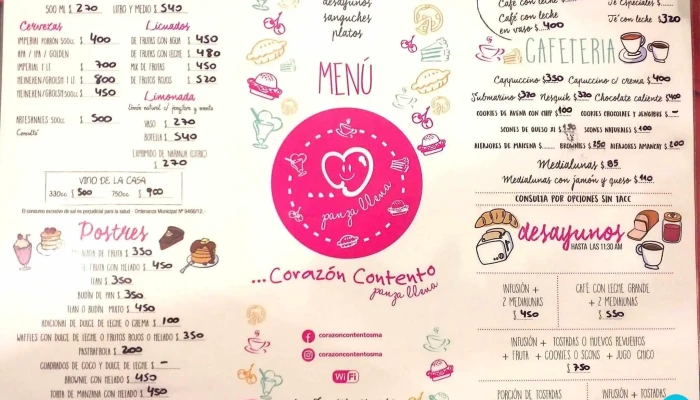 500 ML $ 270 LITRO Y MEDIO $ 540
Cervezas
IMPERIAL PORRÓN 500cc $ 400
APA / IPA / GOLDEN
IMPERIAL 1 LT $ 700
HEINEKEN/GROLSH 1 LT $ 800
HEINEKEN/GROLSH 500cc $ 450
ARTESANALES 500cc $ 500
Consulte
VINO DE LA CASA
330cc $ 500 750cc $ 900
El consumo excesivo de sal es perjudicial para la salud - Ordenanza Municipal Nº 9466/12.
Licuados
DE FRUTAS CON AGUA $ 450
DE FRUTAS CON LECHE $ 480
MIX DE FRUTAS $ 450
DE FRUTOS ROJOS $ 520
Limonada
Limón natural c/ jengibre y menta
VASO $ 270
BOTELLA $ 540
EXPRIMIDO DE NARANJA (CITRIC)
$ 270
Postres
DE FRUTA $ 350
DE FRUTA CON HELADO $ 450
FLAN $ 350
BUDÍN DE PAN $ 350
FLAN O BUDÍN MIXTO $ 450
ADICIONAL DE DULCE DE LECHE O CREMA $ 100
WAFFLES CON DULCE DE LECHE O FRUTOS ROJOS O HELADO $ 350
PASTAFROLA $ 200
CUADRADOS DE COCO Y DULCE DE LECHE $ —
BROWNIE CON HELADO $ 450
TORTA DE MANZANA CON HELADO $ 450
desayunos
sanguches
platos
MENÚ
panza llena
...Corazón Contento
panza llena
corazoncontentosma
corazoncontentosma
WiFi
Café con leche $
Café con leche
en vaso $ 400
Té Especiales $
Té con leche $ 320
CAFETERIA
Cappuccino $ 350 Capuccino c/ crema $ 400
Submarino $ 370 Nesquik $ 320 Chocolate caliente $ 400
COOKIES DE AVENA CON CHIP $ 100 COOKIES CHOCOLATE Y JENGIBRE $ —
SCONES DE QUESO X1 $ SCONES NATURALES $ 100
ALFAJORES DE MAICENA $ BROWNIES $ 250 ALFAJORES AMANCAY $ 200
Medialunas $ 85
Medialunas con jamón y queso $ 110
CONSULTA POR OPCIONES SIN TACC
desayunos
HASTA LAS 11:30 AM
INFUSIÓN +
2 MEDIALUNAS
$ 450
CAFÉ CON LECHE GRANDE
+ 2 MEDIALUNAS
$ 550
INFUSIÓN + TOSTADAS O HUEVOS REVUELTOS
+ FRUTA + COOKIES O SCONS + JUGO CHICO
$ 750
PORCIÓN DE TOSTADAS
INFUSIÓN + TOSTADAS